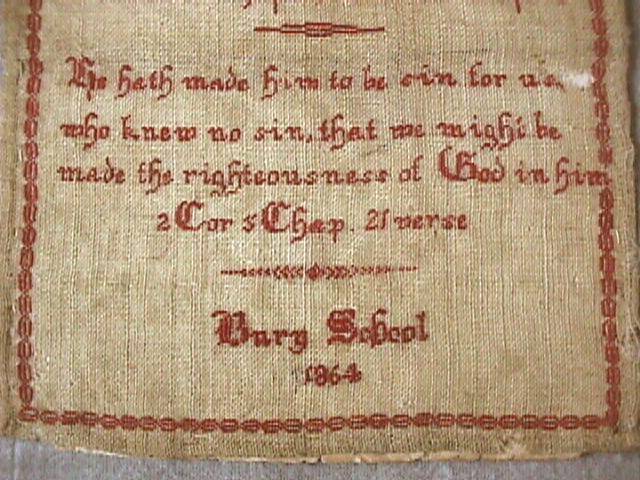 He hath made him to be sin for us,
who knew no sin, that we might be
made the righteousness of God in him
2 Cor 5 Chap. 21 verse
Bury School
1864